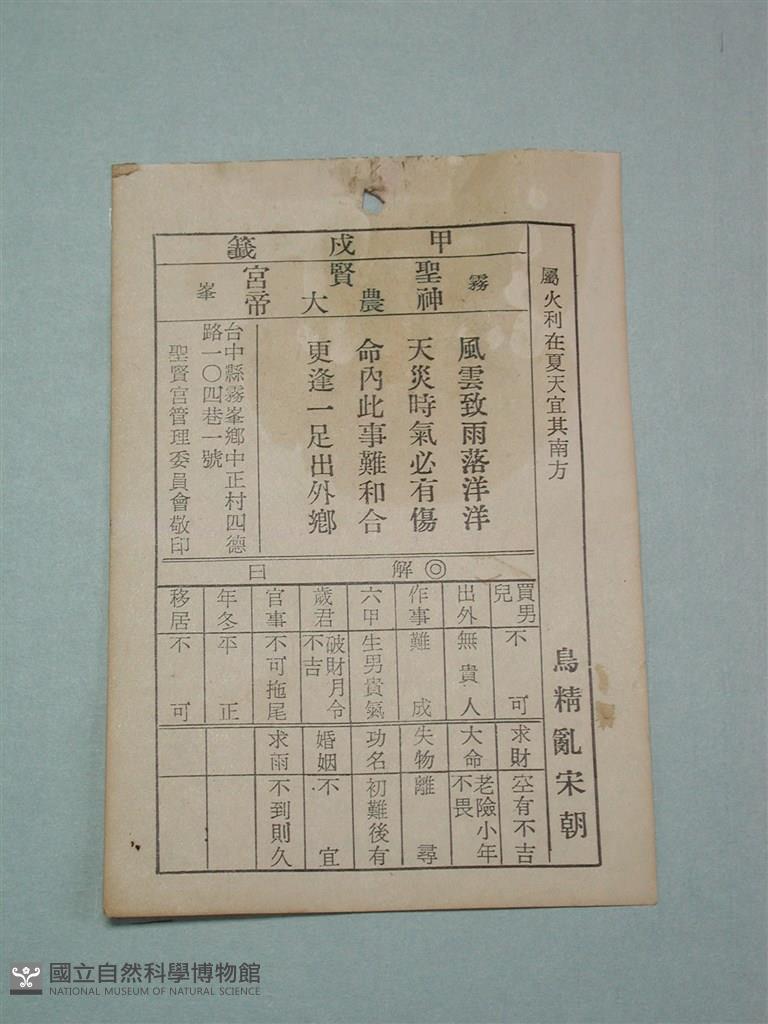 屬火利在夏天宜其南方
鳥精亂宋朝
甲戍籤
霧峯
聖賢宮
神農大帝
風雲致雨落洋洋
天災時氣必有傷
命內此事難和合
更逢一足出外鄉
台中縣霧峯鄉中正村四德
路一〇四巷一號
聖賢宮管理委員會敬印
◎解曰
買男兒 不可
出外 無貴人
作事 難成
六甲 生男貴氣
歲君 破財月令不吉
官事 不可拖尾
年冬 平正
移居 不可
求財 空有不吉
大命 老險小年不畏
失物 離尋
功名 初難後有
婚姻 不宜
求雨 不到則久
國立自然科學博物館
NATIONAL MUSEUM OF NATURAL SCIENCE